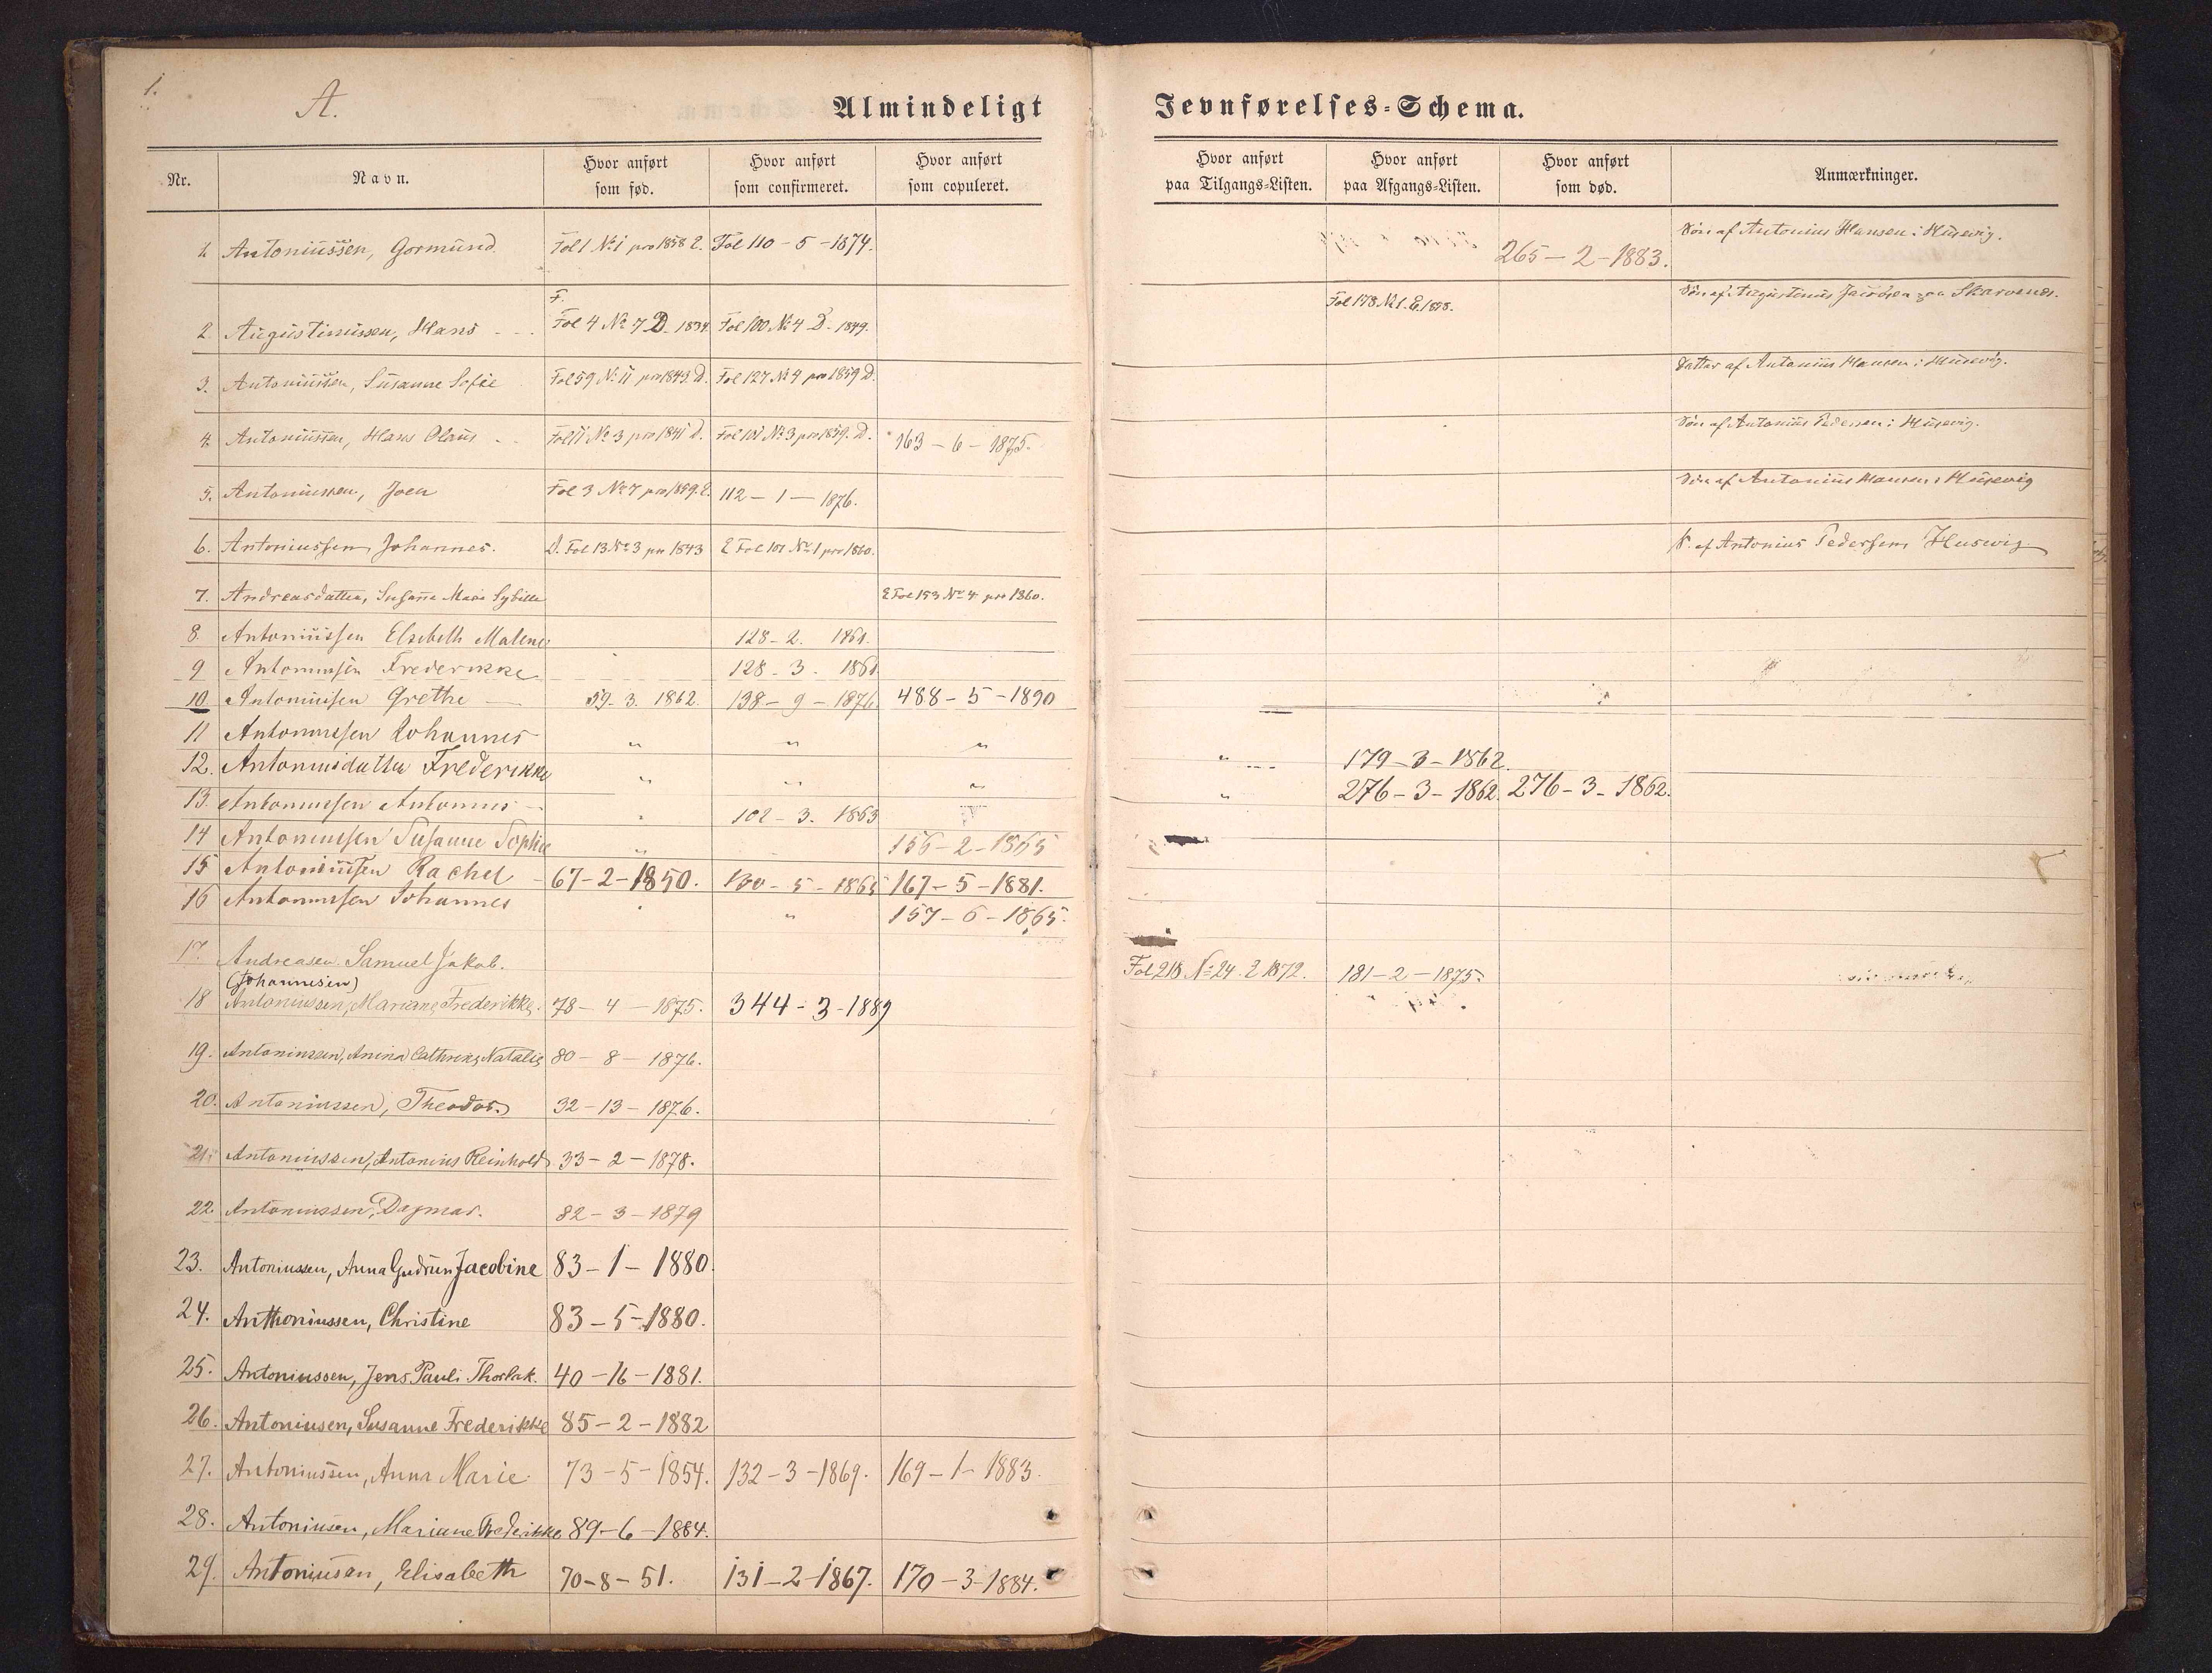 1.
A.
Almindeligt Jevnførelses-Schema.
Nr. Navn. Hvor anført som fød. Hvor anført som confirmeret. Hvor anført som copuleret. Hvor anført paa Tilgangs-Listen. Hvor anført paa Afgangs-Listen. Hvor anført som død. Anmærkninger.
1. Antoniüssen, Gormünd. Fol 1 No 1 pro 1858 E. Fol 110 - 5 - 1874. 265 - 2 - 1883. Søn af Antonius Hansen i Hüsevig.
2. Augustinüssen, Hans F. Fol 4 No 7 D. 1834. Fol 100. No 4 D. 1849. Fol 178. No 1. E. 1858. Søn af Augustinüs paa Skarvenes.
3. Antoniüssen, Süsanne Sofie Fol 59 No 11 pro 1843. D. Fol 127 No 4 pro 1859 D. Datter af Antoniüs Hansen i Hüsevig.
4. Antoniüssen, Hans Olaüs Fol 11 No 3 pro 1841 D. Fol 101 No 3 pro 1859. D. 163 - 6 - 1875. Søn af Antoniüs Pedersen i Hüsevig.
5. Antoniussen, Joen Fol 3 No 7 pro 1859. E. 112 - 1 - 1876. Søn af Antoniüs Hansen i Hüsevig
6. Antoniussen, Johannes. D. Fol 13. No 3 pro 1843 E Fol 101 No 1 pro 1860. S. af Antonius Pedersen, Husevig
7. Andreasdatter, Susanna Maria Sybilla E Fol 153 No 4 pro 1860.
8. Antoniüssen Elsebeth Malene 128 - 2. 1861.
9 Antoniussen Frederikke 128 - 3. 1861.
10 Antoniussen Grethe 59 - 3. 1862. 138 - 9 - 1876 488 - 5 - 1890
11 Antoniussen Johannes " " " " 179 - 3 - 1862.
12. Antoniusdatter Frederikke " " " " 276 - 3 - 1862. 276 - 3 - 1862.
13. Antoniussen Antonius " 102 - 3. 1863
14 Antoniussen Susanne Sophie " 156 - 2 - 1865
15 Antoniüssen Rachel 67 - 2 - 1850. 130 - 5 - 1865 167 - 5 - 1881.
16 Antoniussen Johannes " " 157 - 6 - 1865.
17. Andreasen Samuel Jakob. Fol 218 No 24. E 1872. 181 - 2 - 1875.
(Johannesen)
18 Antoniussen, Mariane Frederikke. 78 - 4 - 1875. 344 - 3 - 1889
19. Antoniussen, Anina Cathrine Natalie 80 - 8 - 1876.
20. Antoniussen, Theodor. 32 - 13 - 1876.
21. Antoniussen, Antonius Reinhold 33 - 2 - 1878.
22. Antoniussen, Dagmar. 82 - 3 - 1879
23. Antoniussen, Anna Gudrun Jacobine 83 - 1 - 1880.
24. Anthoniussen, Christine 83 - 5 - 1880.
25. Antoniussen, Jens Pauli Thorlak. 40 - 16 - 1881.
26. Antoniusen, Susanne Frederikke 85 - 2 - 1882
27. Antoniussen, Anna Marie 73 - 5 - 1854. 132 - 3 - 1869. 169 - 1 - 1883.
28. Antoniusen, Mariane Frederikke 89 - 6 - 1884.
29. Antoniusen, Elisabeth 70 - 8 - 51. 131 - 2 - 1867. 170 - 3 - 1884.